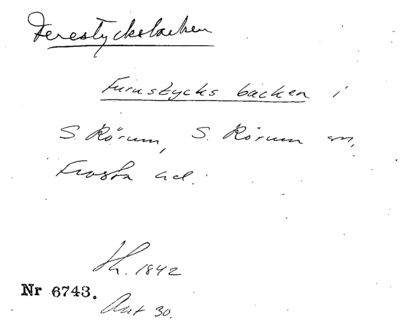 Ferestycksbacken
Furustycks backen i
S. Rörum, S. Rörum sn,
Frosta hd.
Th. 1842
Nr 6743.
Ant 30.